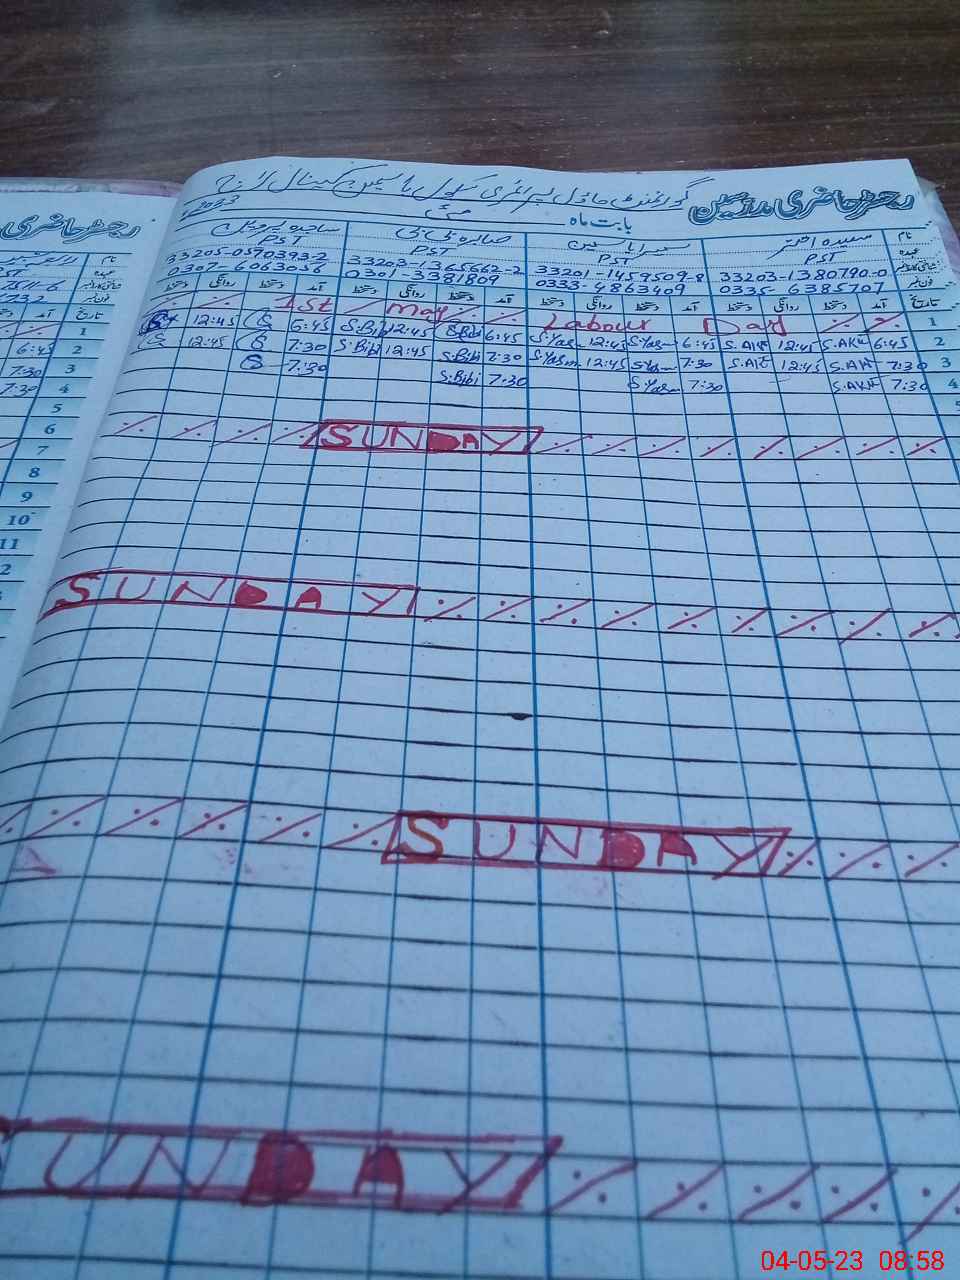 رجسٹر حاضری مدرسین گورنمنٹ ماڈل پرائمری سکول یاسمین کینال لانج
بابت ماہ مئی 2023
نام سعیدہ اختر سمیرا یاسمین صابرہ بی بی ساجدہ پروین
عہدہ PST PST PST PST
شناختی کارڈ نمبر 33203-1380790-0 33201-1459509-8 33203-1365662-2 33205-0590393-2
فون نمبر 0335-6385707 0333-4863409 0301-3381809 0307-6063056
تاریخ آمد دستخط روانگی دستخط آمد دستخط روانگی دستخط آمد دستخط روانگی دستخط آمد دستخط روانگی دستخط
1 1st May Labour Day
2 6:45 S.AKH 12:45 S.AKH 6:45 S.Yasm 12:45 S.Yasm 6:45 S.Bibi 12:45 S.Bibi 6:45 S 12:45 S
3 7:30 S.AKH 12:45 S.AKH 7:30 S.Yasm 12:45 S.Yasm 7:30 S.Bibi 12:45 S.Bibi 7:30 S 12:45 S
4 7:30 S.AKH 7:30 S.Yasm 7:30 S.Bibi 7:30 S
SUNDAY
SUNDAY
SUNDAY
SUNDAY
رجسٹر حاضری
نام
عہدہ
شناختی کارڈ نمبر
فون نمبر
تاریخ آمد دستخط
1
2 6:45
3 7:30
4 7:30
5
6
7
8
9
10
11
04-05-23 08:58